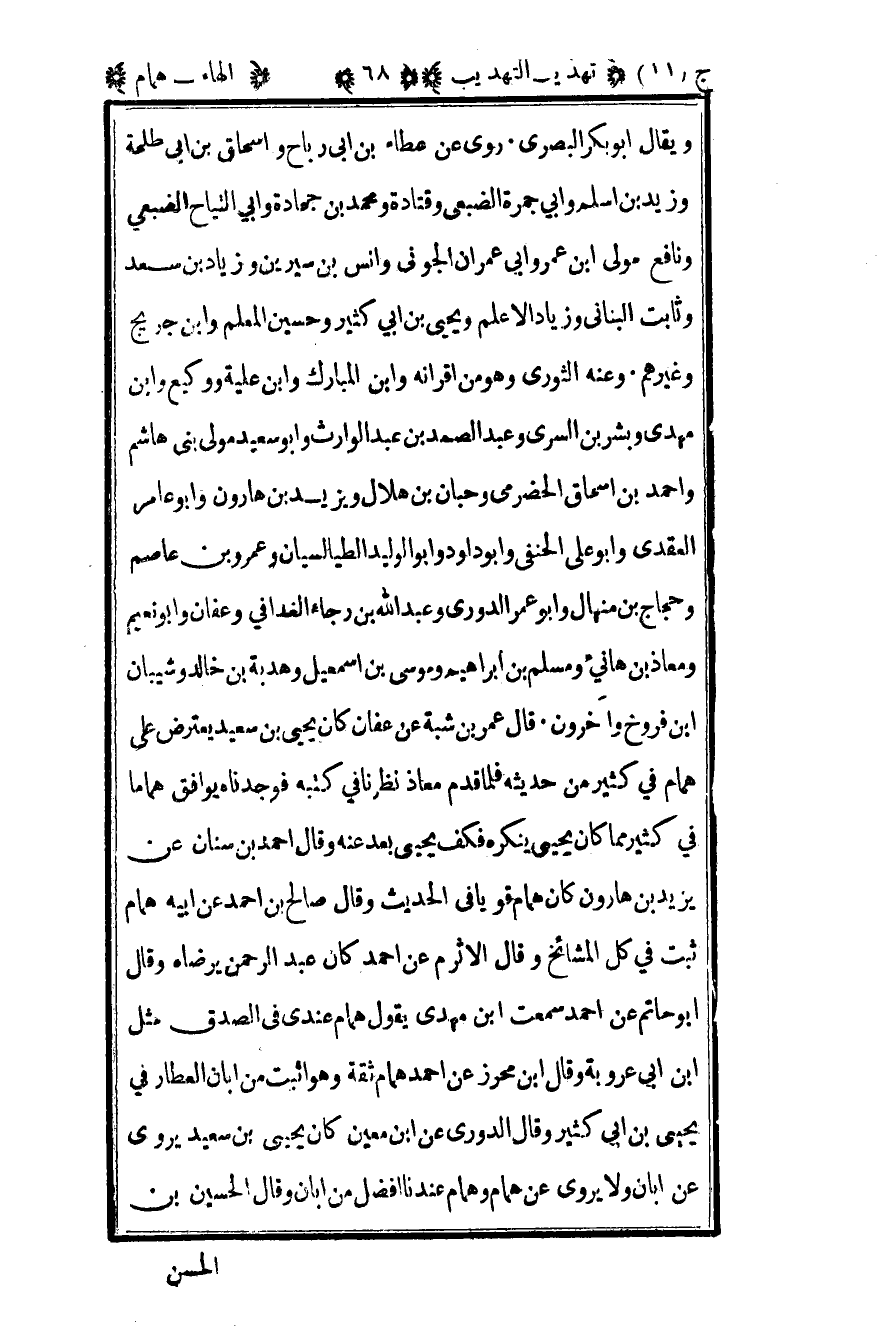 ج (١١) تهذيب التهذيب ٦٨ الهاء ـ همام
ويقال ابو بكر البصرى · روى عن عطاء بن ابى رباح و اسحاق بن ابى طلحة
وزيد بن اسلم وابي جمرة الضبعى وقتادة ومحمد بن جحادة وابي التياح الضبعي
ونافع مولى ابن عمر وابى عمران الجونى وانس بن سيرين وزياد بن سعد
وثابت البنانى وزياد الاعلم ويحيى بن ابي كثير وحسين المعلم وابن جريج
وغيرهم · وعنه الثورى وهو من اقرانه وابن المبارك وابن علية ووكيع وابن
مهدى وبشر بن السرى وعبد الصمد بن عبد الوارث وابو سعيد مولى بنى هاشم
واحمد بن اسحاق الحضرمى وحبان بن هلال ويزيد بن هارون وابو عامر
العقدى وابو على الحنفى وابو داود وابو الوليد الطيالسيان وعمرو بن عاصم
وحجاج بن منهال وابو عمر الدورى وعبد الله بن رجاء الغدافي وعفان وابو نعيم
ومعاذ بن هانئ ومسلم بن أبراهيم وموسى بن اسمعيل وهدبة بن خالد وشيبان
ابن فروخ وآخرون · قال عمر بن شبة عن عفان كان يحيى بن سعيد يعترض على
همام في كثير من حديثه فلما قدم معاذ نظرنا في كتبه فوجدناه يوافق هماما
في كثير مما كان يحيى ينكره فكف يحيى بعد عنه وقال احمد بن سنان عن
يزيد بن هارون كان همام قويا فى الحديث وقال صالح بن احمد عن ابيه همام
ثبت في كل المشائخ و قال الاثرم عن احمد كان عبد الرحمن يرضاه وقال
ابو حاتم عن احمد سمعت ابن مهدى يقول همام عندى فى الصدق مثل
ابن ابي عروبة وقال ابن محرز عن احمد همام ثقة وهو اثبت من ابان العطار في
يحيى بن ابي كثير وقال الدورى عن ابن معين كان يحيى بن سعيد يروى
عن ابان ولا يروى عن همام وهمام عندنا افضل من ابان وقال الحسين بن
الحسن